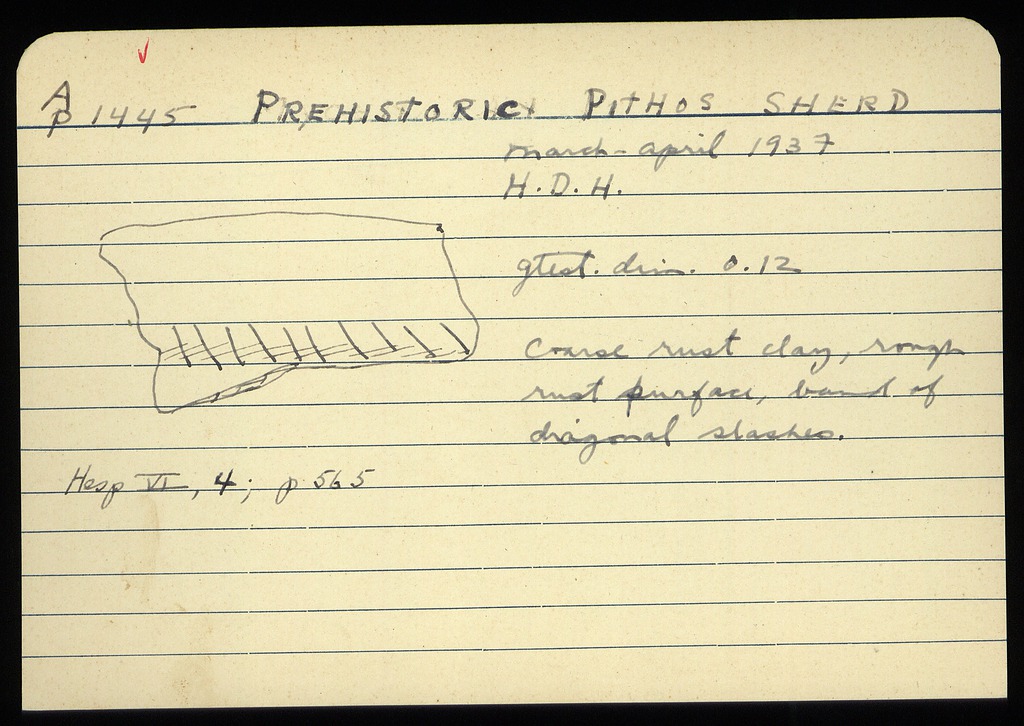 A
P 1445 PREHISTORIC PITHOS SHERD
March-April 1937
H.D.H.
gtest. dim. 0.12
Coarse rust clay, rough
rust surface, band of
diagonal slashes.
Hesp VI, 4; p 565